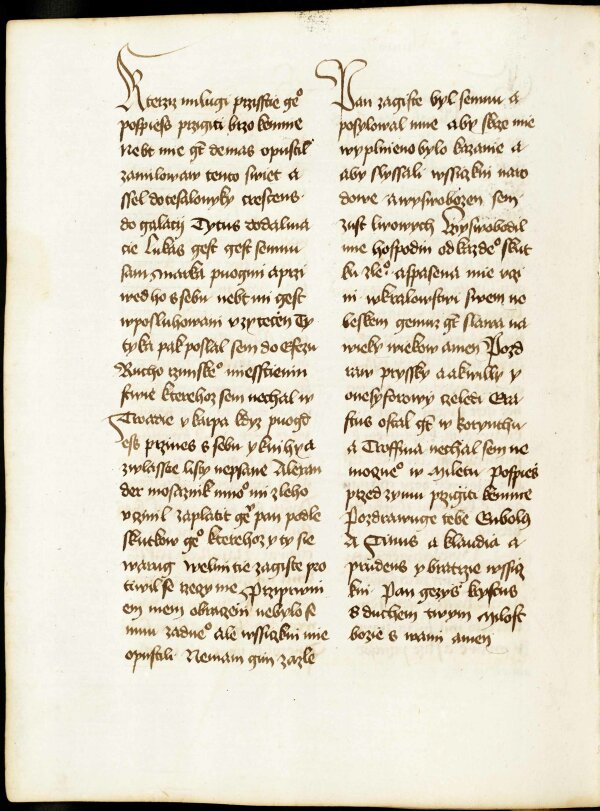 Kterziz milugi przisstie geᵒ
pospiess przigiti brzo kemnie
Nebt mie gt demas opustil
zamilowaw tento swiet a
ssel dotesalonyky crescens
do galatij Tytus dodalma
cie Lukas gest gest semnu
sam Marka puogmi a przi
wed ho s sebu nebt mi gest
wposluhowani vzyteczen Ty
tyka pak poslal sem do Efezu
Rucho rzimskeᵒ miesstienin
stwie kterehoz sem nechal w
Troadie v karpa kdyz puogd
ess przines s sebu y knihy a
zwlasstie listy nepsane Alexan
der mosaznik mnoᵒ mi zleho
vczinil zaplatit geᵒ pan podle
skutkow geᵒ kterehoz y ty sie
warug welmi tie zagiste pro
tiwil se rzeczy me Przi prwni
em mem obrazeni nebylo se
mnu zadneᵒ ale wssiczkni mie
opustili Nemam gim zazle
Pan zagiste byl semnu a
posylowal mne aby skrze mie
wyplnieno bylo kazanie a
aby slyssali wssiczkni naro
dowe a wyswobozen sem
zust lwowych Wyswobodil
mie hospodin od kazdeᵒ skut
ku zleᵒ a spasena mie vczi
ni w kralowstwi swem ne
beskem gemuz gt slawa na
wieky wiekow amen Pozd
raw prysky a akwilly y
onezyforowy czeledi Era
stus ostal gt w korynthu
a Troffima nechal sem ne
moczneᵒ w Miletu Pospies
przed zymu przigiti kemnie
Pozdrawuge tebe Eubolus
A Linus a klaudia a
prudens y bratrzie wssicz
kni Pan gezys krystus
s duchem twym Milost
bozie s wami amen